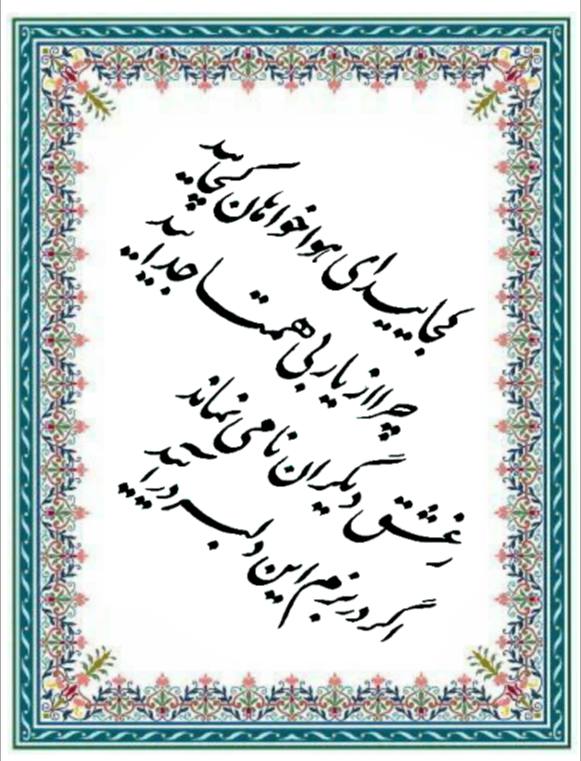 کجایید ای هواخواهان کجایید
چرا از یار بی همتا جدایید
ز عشق دیگران نامی نماند
اگر در بزم این دلبر درآیید